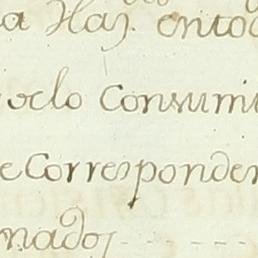 a Haz. entod
delo Consumi
e Corresponden
nados